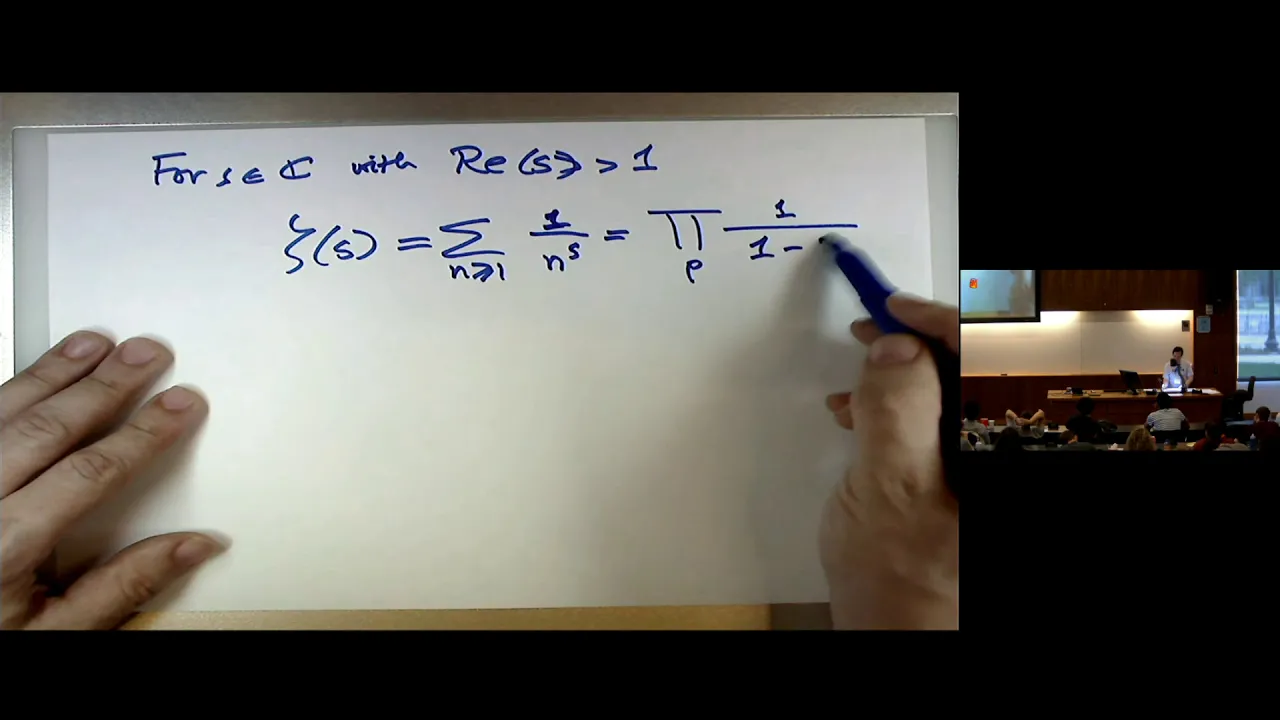 For s ∈ ℂ with Re(s) > 1
ζ(s) = ∑_{n≥1} 1/n^s = ∏_p 1/(1 -